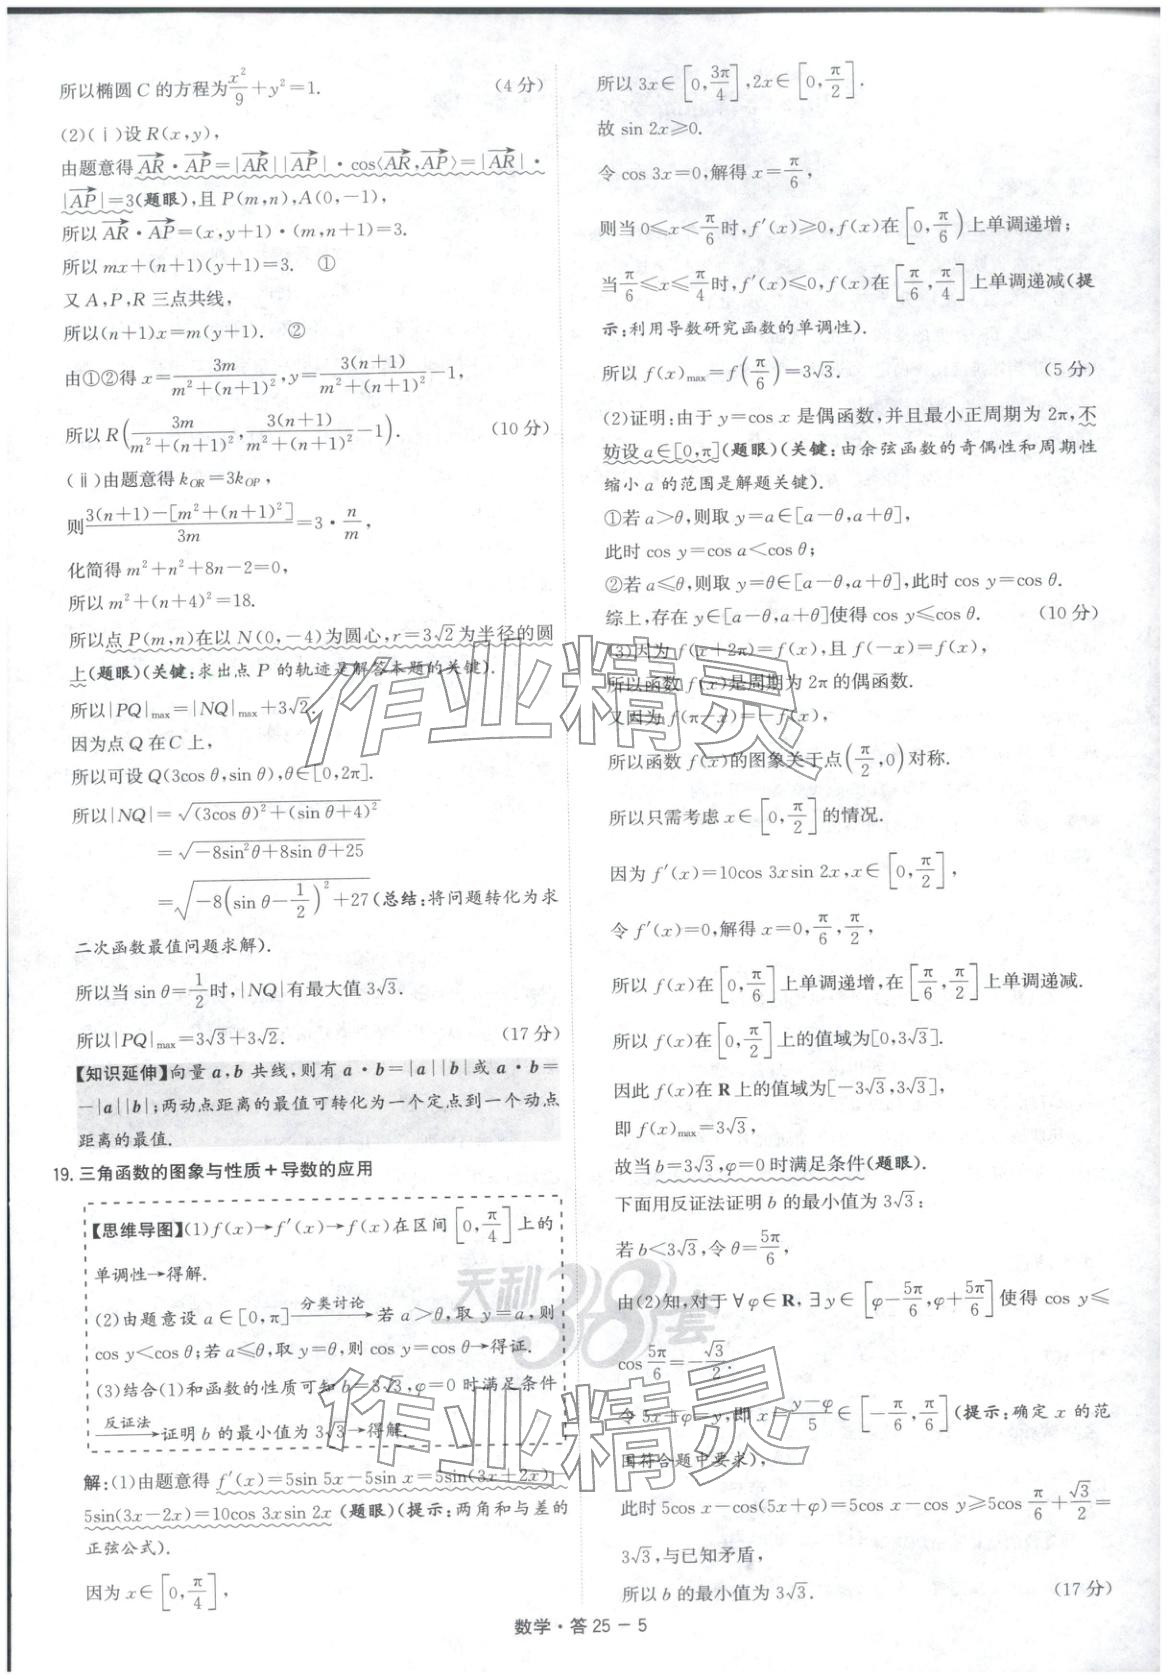 所以椭圆 C 的方程为x²/9+y²=1. (4 分)
(2)(ⅰ)设 R(x,y),
由题意得 AR·AP=|AR||AP|·cos⟨AR,AP⟩=|AR|·
|AP|=3(题眼),且 P(m,n),A(0,-1),
所以 AR·AP=(x,y+1)·(m,n+1)=3.
所以 mx+(n+1)(y+1)=3. ①
又 A,P,R 三点共线,
所以(n+1)x=m(y+1). ②
由①②得 x=3m/(m²+(n+1)²),y=3(n+1)/(m²+(n+1)²)-1,
所以 R(3m/(m²+(n+1)²),3(n+1)/(m²+(n+1)²)-1). (10 分)
(ⅱ)由题意得 k_OR=3k_OP,
则(3(n+1)-[m²+(n+1)²])/3m=3·n/m,
化简得 m²+n²+8n-2=0,
所以 m²+(n+4)²=18.
所以点 P(m,n)在以 N(0,-4)为圆心,r=3√2为半径的圆
上(题眼)(关键:求出点 P 的轨迹是解答本题的关键).
所以|PQ|max=|NQ|max+3√2.
因为点 Q 在 C 上,
所以可设 Q(3cos θ,sin θ),θ∈[0,2π].
所以|NQ|=√((3cos θ)²+(sin θ+4)²)
=√(-8sin²θ+8sin θ+25)
=√(-8(sin θ-1/2)²+27)(总结:将问题转化为求
二次函数最值问题求解).
所以当 sin θ=1/2时,|NQ|有最大值 3√3.
所以|PQ|max=3√3+3√2. (17 分)
【知识延伸】向量 a,b 共线,则有 a·b=|a||b|或 a·b=
-|a||b|;两动点距离的最值可转化为一个定点到一个动点
距离的最值.
19. 三角函数的图象与性质+导数的应用
【思维导图】(1)f(x)→f′(x)→f(x)在区间[0,π/4]上的
单调性→得解.
(2)由题意设 a∈[0,π] 分类讨论→ 若 a>θ,取 y=a,则
cos y<cos θ;若 a≤θ,取 y=θ,则 cos y=cos θ→得证.
(3)结合(1)和函数的性质可知 b=3√3,φ=0 时满足条件
反证法→ 证明 b 的最小值为 3√3→得解.
解:(1)由题意得 f′(x)=5sin 5x-5sin x=5sin(3x+2x)
5sin(3x-2x)=10cos 3xsin 2x (题眼)(提示:两角和与差的
正弦公式).
因为 x∈[0,π/4],
所以 3x∈[0,3π/4],2x∈[0,π/2].
故 sin 2x≥0.
令 cos 3x=0,解得 x=π/6,
则当 0≤x<π/6时,f′(x)≥0,f(x)在[0,π/6)上单调递增;
当π/6≤x≤π/4时,f′(x)≤0,f(x)在[π/6,π/4]上单调递减(提
示:利用导数研究函数的单调性).
所以 f(x)max=f(π/6)=3√3. (5 分)
(2)证明:由于 y=cos x 是偶函数,并且最小正周期为 2π,不
妨设 a∈[0,π](题眼)(关键:由余弦函数的奇偶性和周期性
缩小 a 的范围是解题关键).
①若 a>θ,则取 y=a∈[a-θ,a+θ],
此时 cos y=cos a<cos θ;
②若 a≤θ,则取 y=θ∈[a-θ,a+θ],此时 cos y=cos θ.
综上,存在 y∈[a-θ,a+θ]使得 cos y≤cos θ. (10 分)
(3)因为 f(x+2π)=f(x),且 f(-x)=f(x),
所以函数 f(x)是周期为 2π的偶函数.
又因为 f(π-x)=-f(x),
所以函数 f(x)的图象关于点(π/2,0)对称.
所以只需考虑 x∈[0,π/2]的情况.
因为 f′(x)=10cos 3xsin 2x,x∈[0,π/2],
令 f′(x)=0,解得 x=0,π/6,π/2,
所以 f(x)在[0,π/6]上单调递增,在[π/6,π/2]上单调递减.
所以 f(x)在[0,π/2]上的值域为[0,3√3].
因此 f(x)在 R 上的值域为[-3√3,3√3],
即 f(x)max=3√3,
故当 b=3√3,φ=0 时满足条件(题眼).
下面用反证法证明 b 的最小值为 3√3:
若 b<3√3,令 θ=5π/6,
由(2)知,对于∀φ∈R,∃y∈[φ-5π/6,φ+5π/6]使得 cos y≤
cos 5π/6=-√3/2.
令 5x+φ=y,即 x=(y-φ)/5∈[-π/6,π/6](提示:确定 x 的范
围符合题中要求),
此时 5cos x-cos(5x+φ)=5cos x-cos y≥5cos π/6+√3/2=
3√3,与已知矛盾,
所以 b 的最小值为 3√3. (17 分)
作业精灵
天利38套
作业精灵
数学·答 25-5